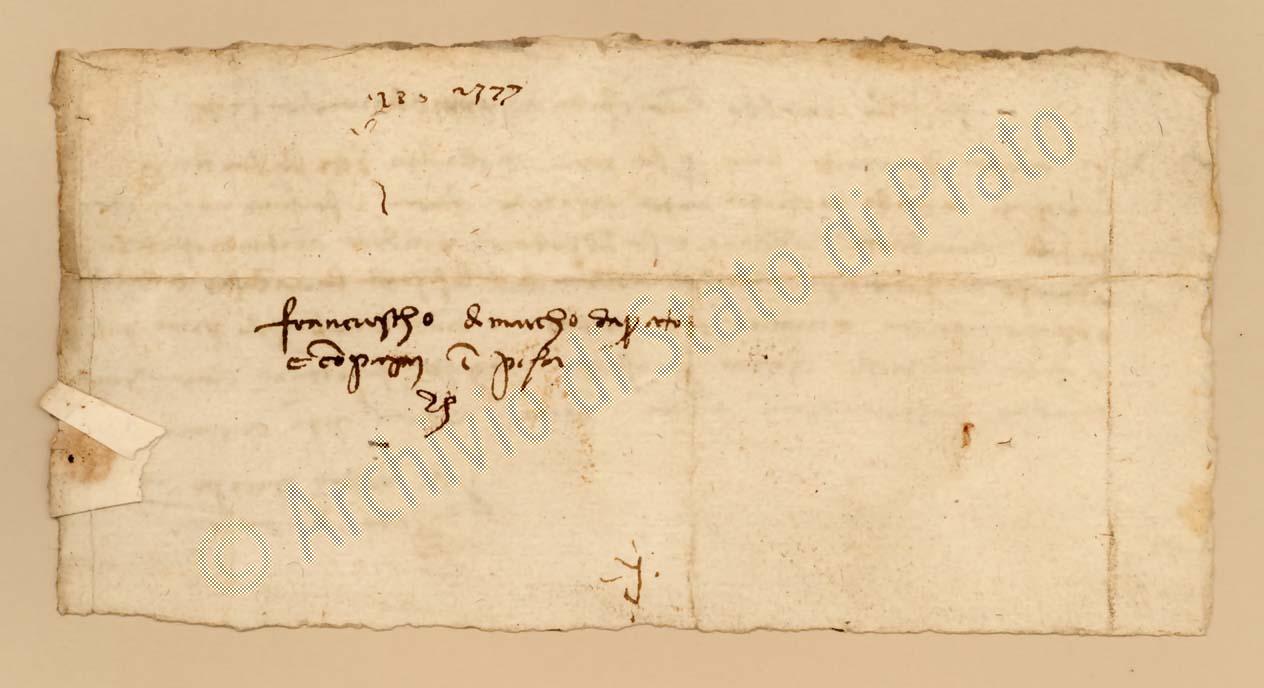 franciescho di marcho da prato
e conpagni in pisa
© Archivio di Stato di Prato